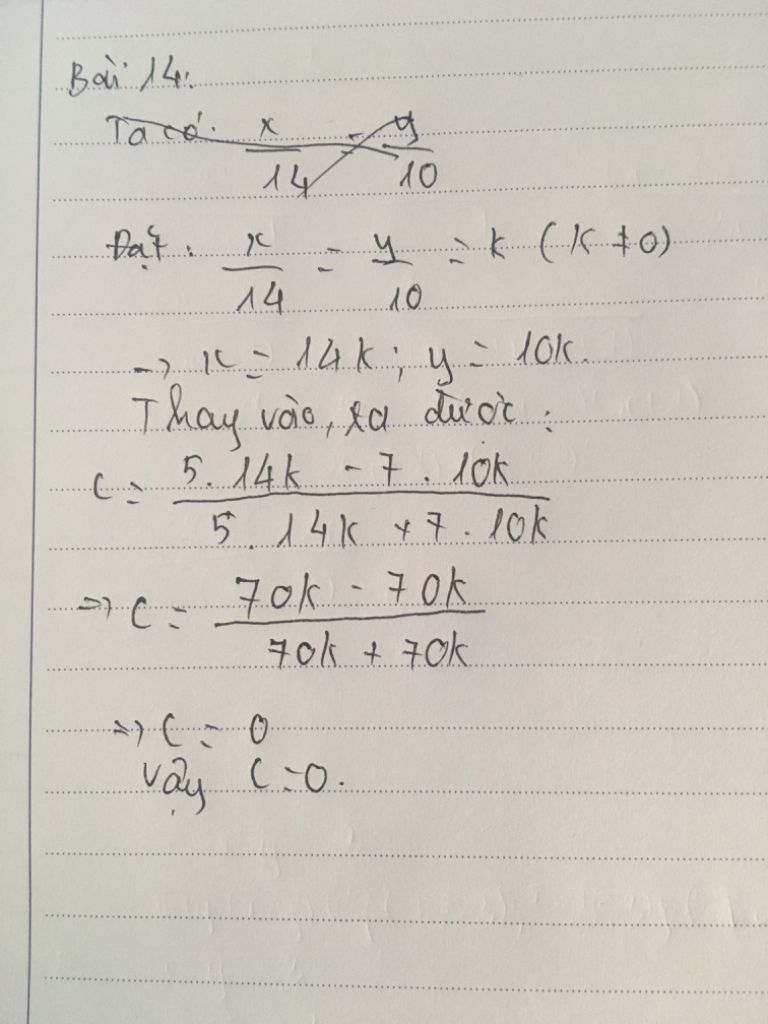 Bài 14:
Ta có: x/14 = y/10
Đặt: x/14 = y/10 = k (k ≠ 0)
→ x = 14k; y = 10k.
Thay vào, ta được:
C = (5.14k - 7.10k)/(5.14k + 7.10k)
⇒ C = (70k - 70k)/(70k + 70k)
⇒ C = 0
Vậy C = 0.